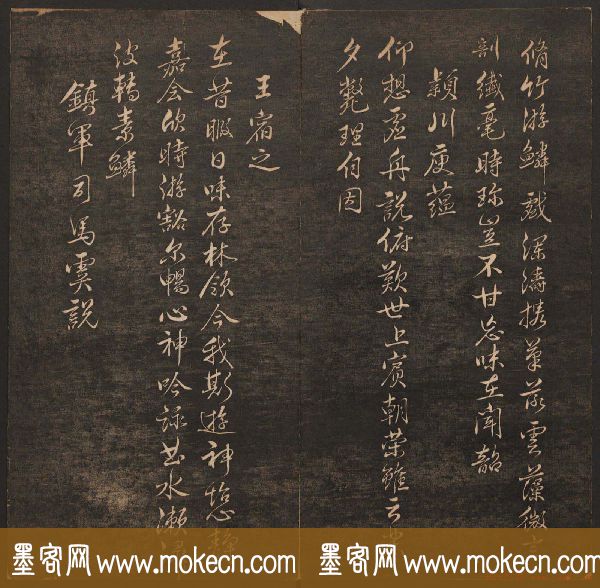 脩竹游鱗戲瀾濤攜筆落雲藻微
剖纖毫時珍豈不甘忘味在聞韶
潁川庾蘊
仰想虛舟說俯歎世上賓朝榮雖云
夕斃理自因
王宿之
在昔暇日味存林嶺今我斯遊神怡
嘉会欣時遊豁尔暢心神吟詠曲水瀨
波轉素鱗
鎮軍司馬虞說
墨客网 www.mokecn.com 墨客网 www.mokecn.com